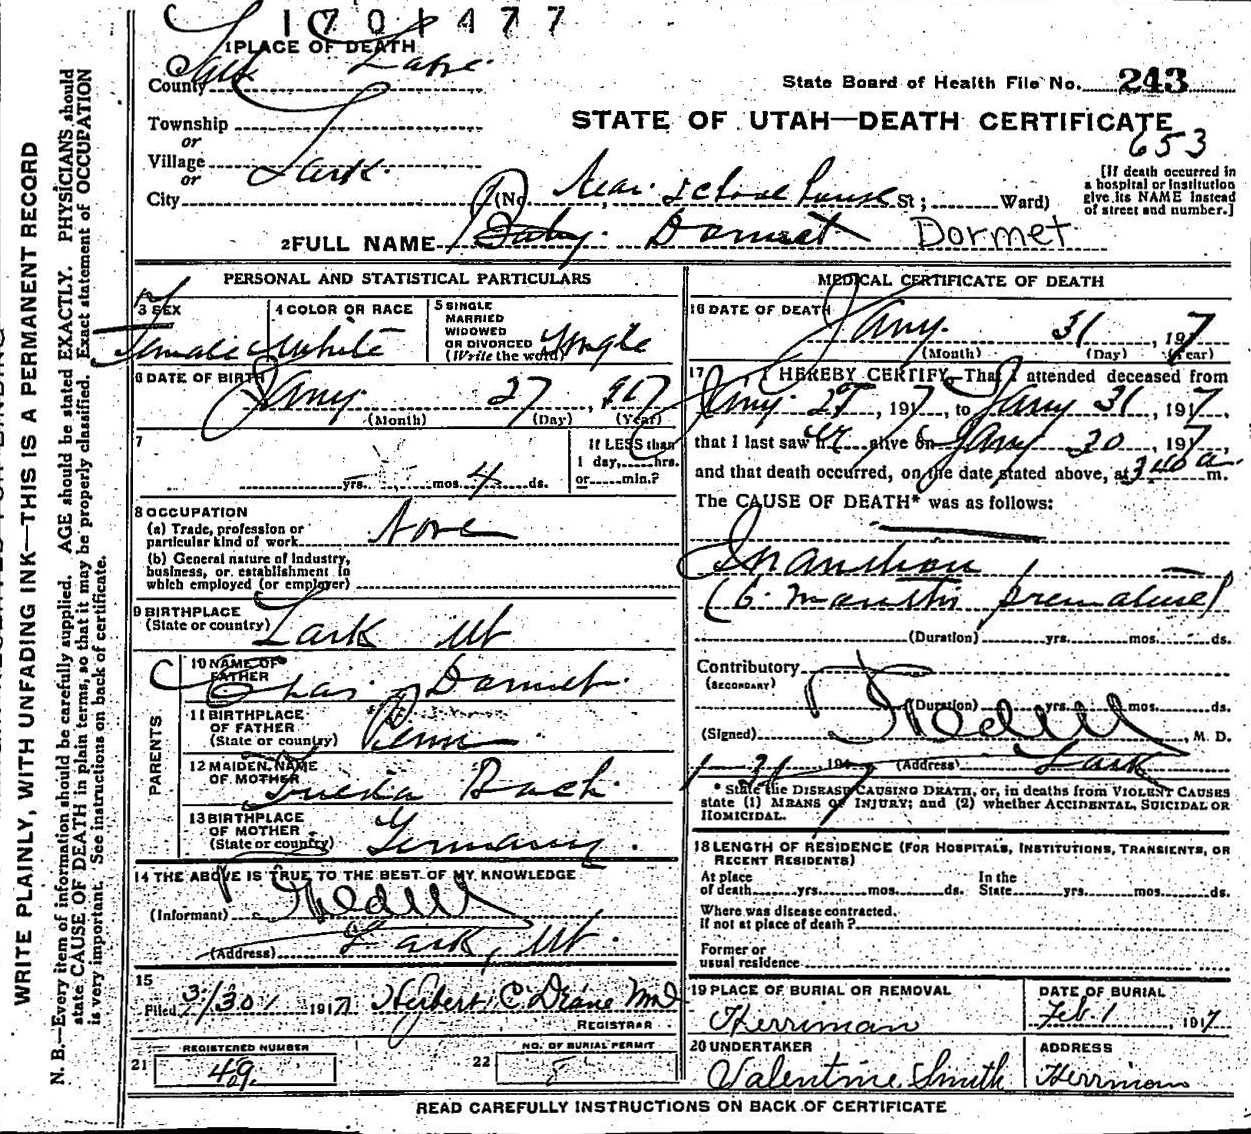 1701477
1 PLACE OF DEATH
County Salt Lake
State Board of Health File No. 243
Township
or
Village Lark
or
City
STATE OF UTAH—DEATH CERTIFICATE
653
(No. Near school house St; Ward)
[If death occurred in a hospital or institution give its NAME instead of street and number.]
2 FULL NAME Baby Dormet Dormet
PERSONAL AND STATISTICAL PARTICULARS
3 SEX
Female
4 COLOR OR RACE
White
5 SINGLE
MARRIED
WIDOWED
OR DIVORCED
(Write the word) Single
6 DATE OF BIRTH
Jany. 27, 917
(Month) (Day) (Year)
7
yrs. mos. 4 ds.
If LESS than
1 day, hrs.
or min.?
8 OCCUPATION
(a) Trade, profession or
particular kind of work None
(b) General nature of industry,
business, or establishment in
which employed (or employer)
9 BIRTHPLACE
(State or country) Lark Ut
PARENTS
10 NAME OF
FATHER Chas. Dormet
11 BIRTHPLACE
OF FATHER
(State or country) Penn
12 MAIDEN NAME
OF MOTHER Bach
13 BIRTHPLACE
OF MOTHER
(State or country) Germany
14 THE ABOVE IS TRUE TO THE BEST OF MY KNOWLEDGE
(Informant)
(Address) Lark, Ut.
15
Filed 3/30 1917 Herbert C. Deane MD
REGISTRAR
21 REGISTERED NUMBER
49
22 NO. OF BURIAL PERMIT
8
MEDICAL CERTIFICATE OF DEATH
16 DATE OF DEATH
Jany. 31, 1917
(Month) (Day) (Year)
17 I HEREBY CERTIFY, That I attended deceased from
Jany. 27, 1917, to Jany 31, 1917,
that I last saw her alive on Jany 30, 1917,
and that death occurred, on the date stated above, at 3 40 a. m.
The CAUSE OF DEATH* was as follows:
Inanition
(6. months premature)
(Duration) yrs. mos. ds.
Contributory
(SECONDARY)
(Duration) yrs. mos. ds.
(Signed) , M. D.
1-31, 1917 (Address) Lark
* State the DISEASE CAUSING DEATH, or, in deaths from VIOLENT CAUSES
state (1) MEANS OF INJURY; and (2) whether ACCIDENTAL, SUICIDAL OR
HOMICIDAL.
18 LENGTH OF RESIDENCE (FOR HOSPITALS, INSTITUTIONS, TRANSIENTS, OR
RECENT RESIDENTS)
At place
of death yrs. mos. ds.
In the
State yrs. mos. ds.
Where was disease contracted.
if not at place of death?
Former or
usual residence
19 PLACE OF BURIAL OR REMOVAL
Herriman
DATE OF BURIAL
Feb. 1, 1917
20 UNDERTAKER
Valentine Smith
ADDRESS
Herriman
READ CAREFULLY INSTRUCTIONS ON BACK OF CERTIFICATE
WRITE PLAINLY, WITH UNFADING INK—THIS IS A PERMANENT RECORD
N. B.—Every item of information should be carefully supplied. AGE should be stated EXACTLY. PHYSICIANS should
state CAUSE OF DEATH in plain terms, so that it may be properly classified. Exact statement of OCCUPATION
is very important. See instructions on back of certificate.